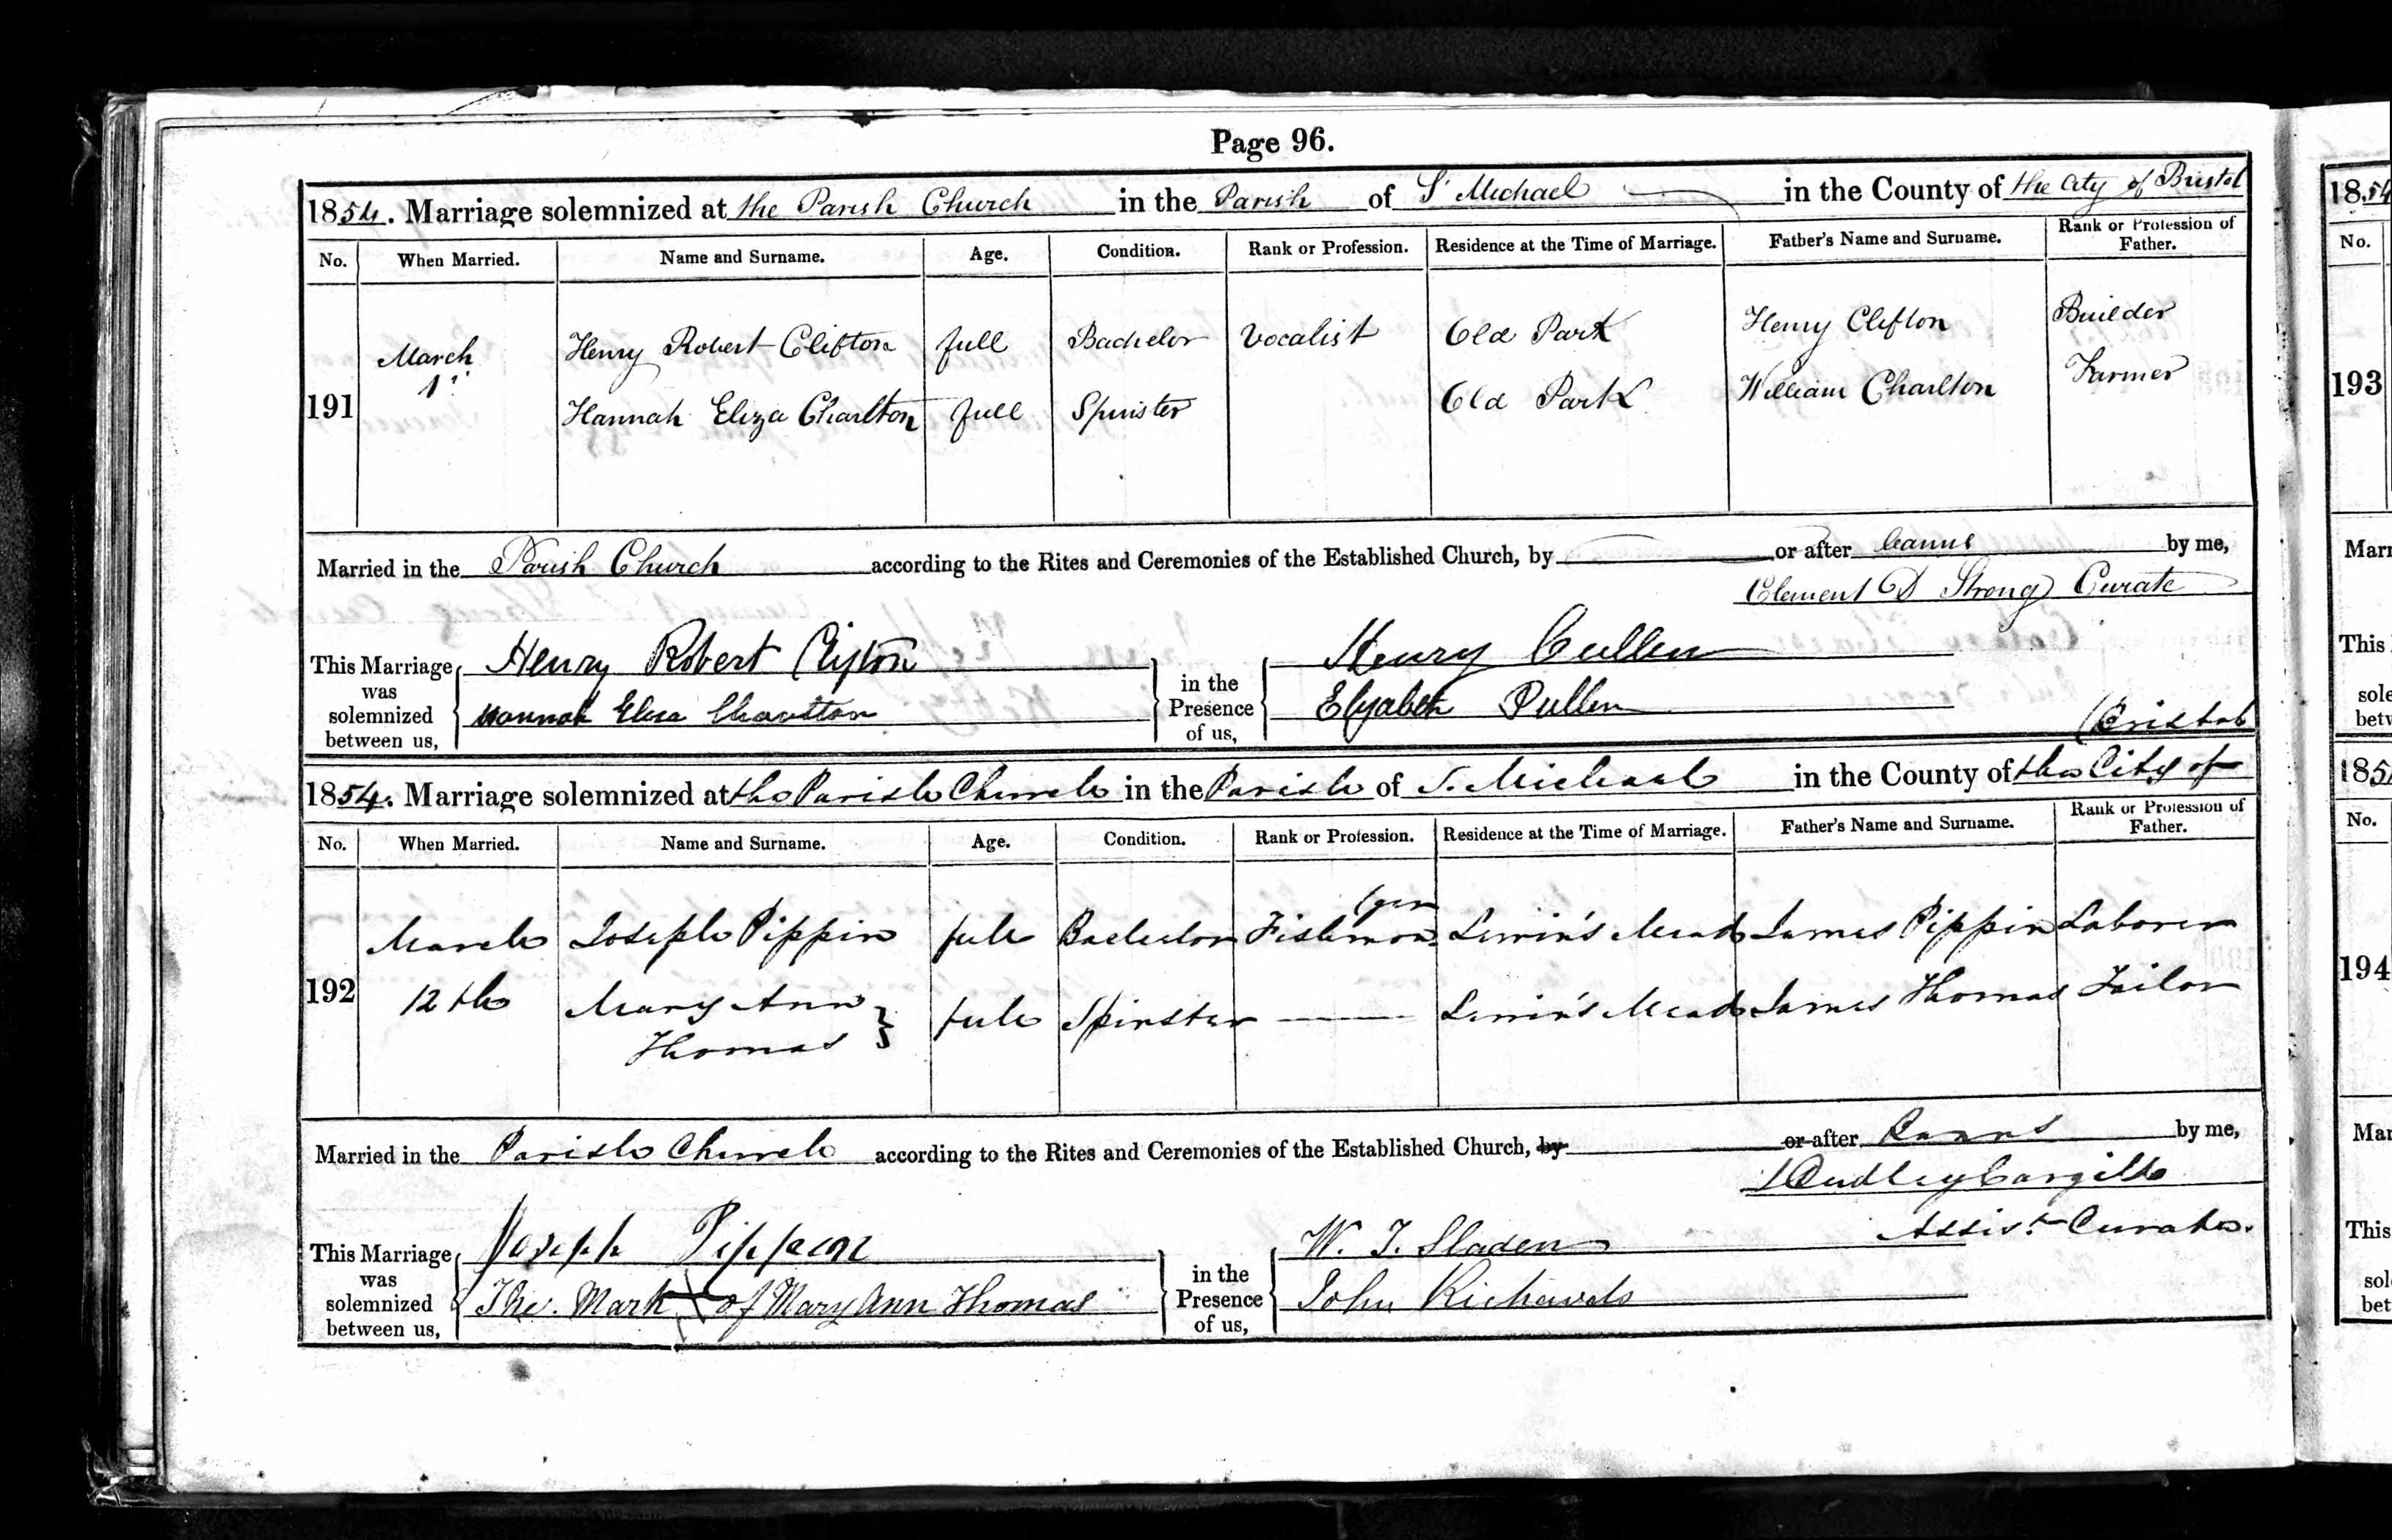 Page 96.
1854. Marriage solemnized at the Parish Church in the Parish of St Michael in the County of the City of Bristol
No. When Married. Name and Surname. Age. Condition. Rank or Profession. Residence at the Time of Marriage. Father's Name and Surname. Rank or Profession of Father.
191 March 1st Henry Robert Clifton full Bachelor Vocalist Old Park Henry Clifton Builder
Hannah Eliza Charlton full Spinster Old Park William Charlton Farmer
Married in the Parish Church according to the Rites and Ceremonies of the Established Church, by or after banns by me,
Clement D Strong Curate
This Marriage was solemnized between us, Henry Robert Clifton in the Presence of us, Henry Cullen
Hannah Eliza Charlton Elizabeth Pullen
(Bristol
1854. Marriage solemnized at the Parish Church in the Parish of S. Michael in the County of the City of
No. When Married. Name and Surname. Age. Condition. Rank or Profession. Residence at the Time of Marriage. Father's Name and Surname. Rank or Profession of Father.
192 March 12th Joseph Pippin full Bachelor Fishmon(ger Lewin's Mead James Pippin Laborer
Mary Ann Thomas } full Spinster Lewin's Mead James Thomas Tailor
Married in the Parish Church according to the Rites and Ceremonies of the Established Church, by or after Banns by me,
J Dudley Cargill
Assist. Curate.
This Marriage was solemnized between us, Joseph Pippin in the Presence of us, W. J. Sladen
The Mark X of Mary Ann Thomas John Richards
1854
No.
193
Marr
This
sole
betw
185
No.
194
Mar
This
sol
bet